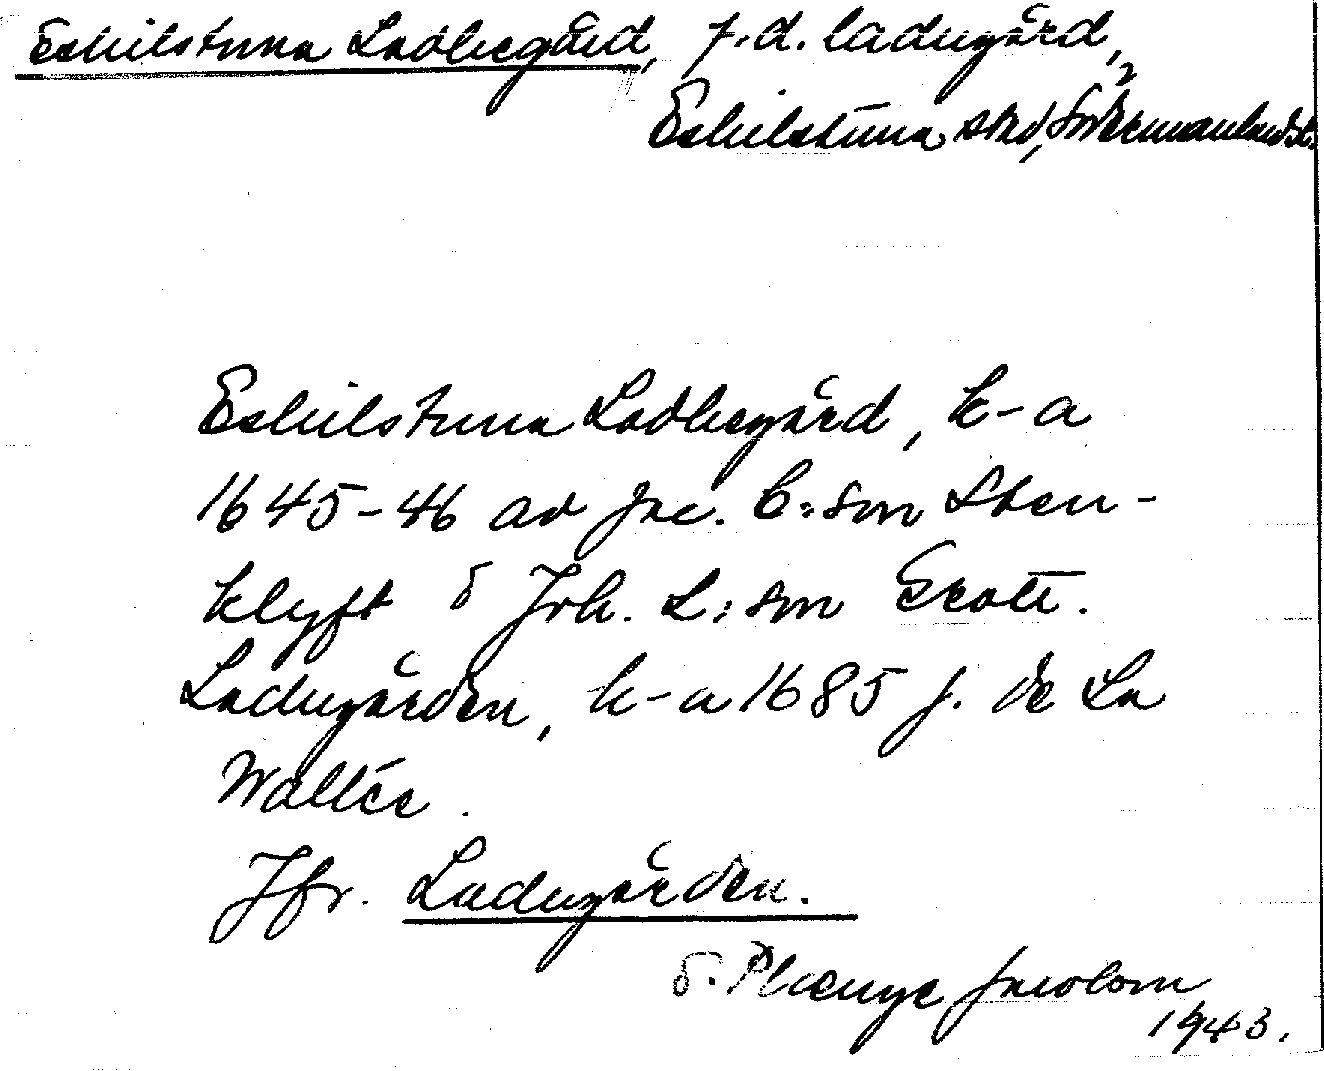 Eskilstuna Ladhegård, f.d. ladugård,
Eskilstuna stad, Södermanlands l.
Eskilstuna Ladhegård, k-a
1645-46 av Jac. C:son Sten-
klyft o Joh. L:son Grott.
Ladugården, k-a 1685 J. de La
Wallée.
Jfr. Ladugården.
S. Plænge Jacobson
1943.